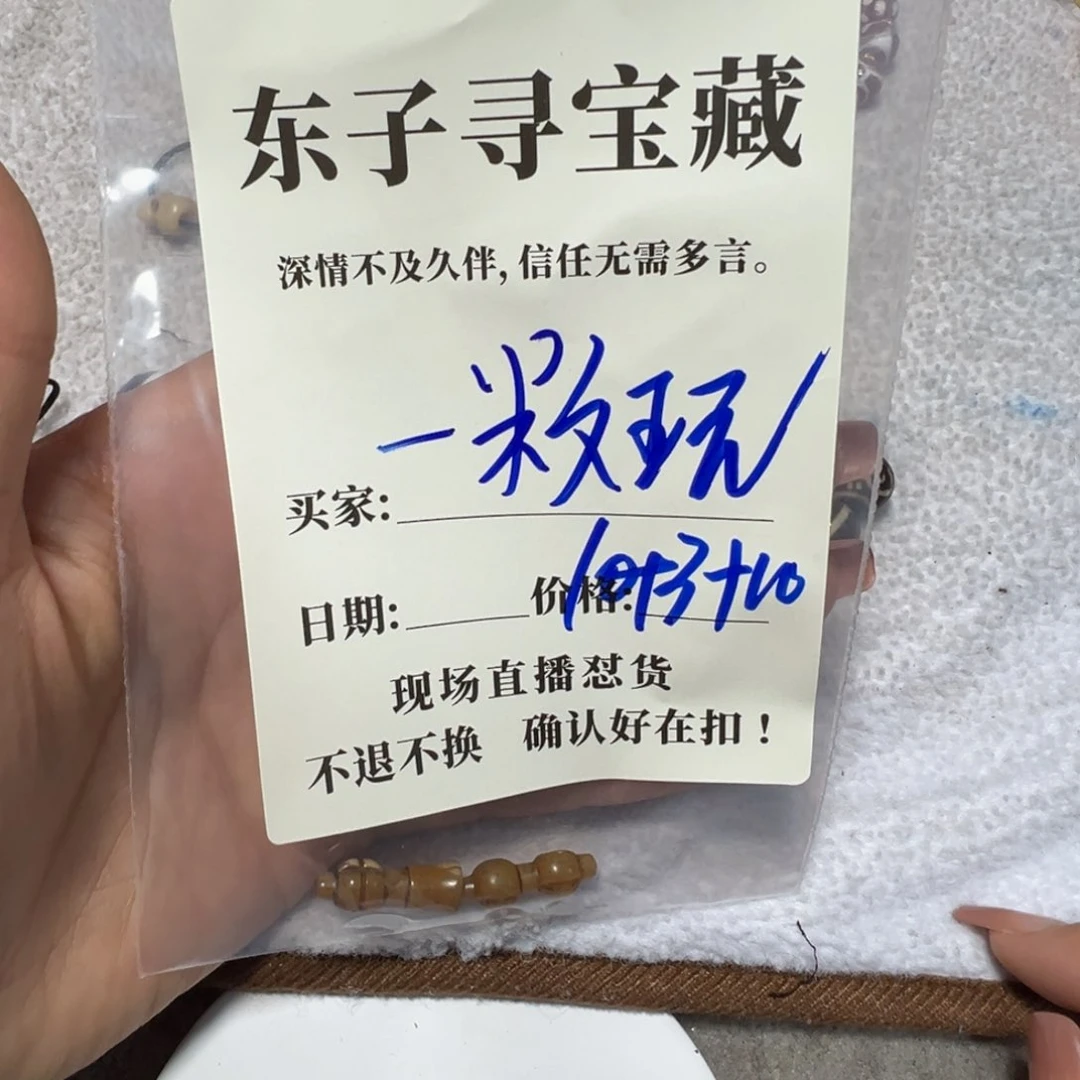 东子寻宝藏
深情不及久伴,信任无需多言。
买家:一
日期:
价格:
现场直播怼货
不退不换 确认好在扣!